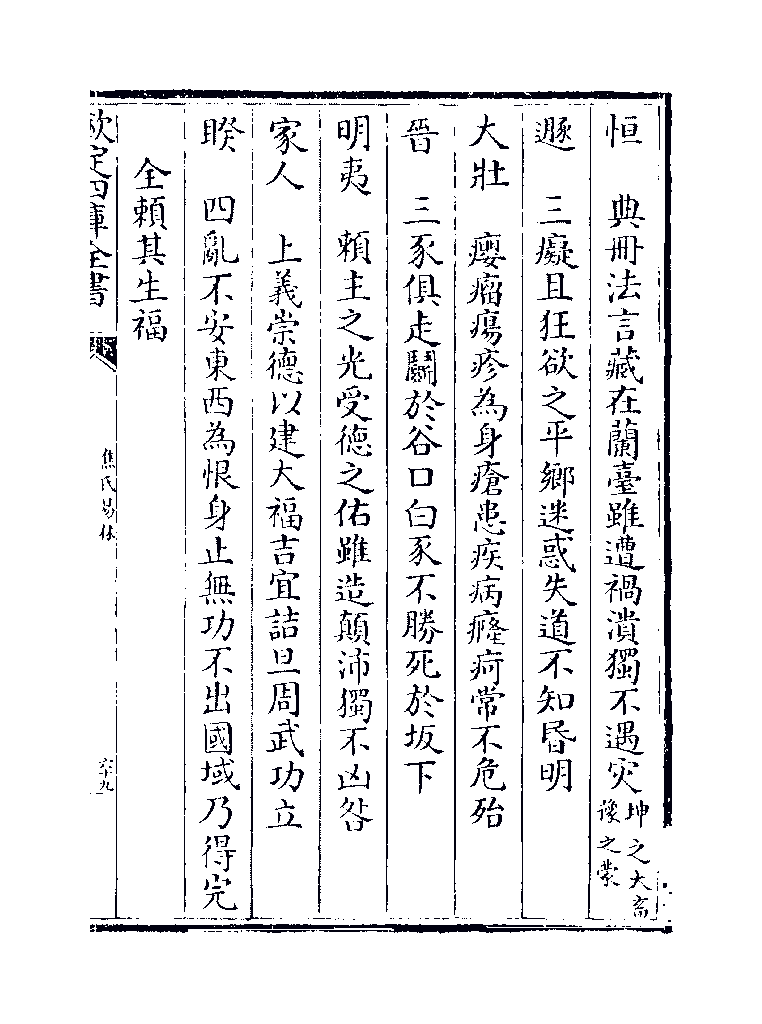 恒　典冊法言藏在蘭臺雖遭禍潰獨不遇灾坤之大畜豫之蒙
遯　三癡且狂欲之平鄉迷惑失道不知昏明
大壯　癭瘤瘍疹為身瘡患疾病癃痾常不危殆
晉　三豕俱走鬭於谷口白豕不勝死於坂下
明夷　頼主之光受德之佑雖造顛沛獨不凶咎
家人　上義崇德以建大福吉宜詰旦周武功立
睽　四亂不安東西為恨身止無功不出國域乃得完
全頼其生福
欽定四庫全書
焦氏易林
六十九